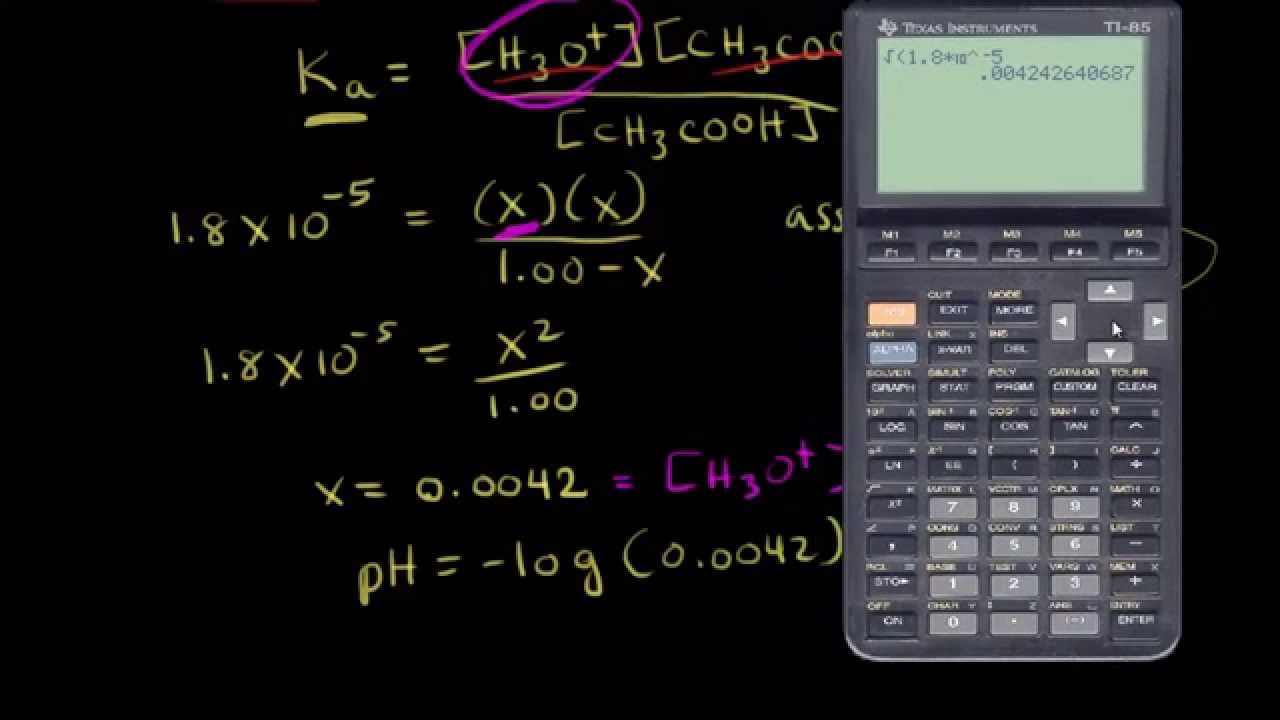 Ka = [H₃O⁺][CH₃COO
[CH₃COOH]
1.8 X 10⁻⁵ = (X)(X)
1.00 - X
ass
1.8 X 10⁻⁵ = X²
1.00
X = 0.0042 = [H₃O⁺]
pH = -log(0.0042)
TEXAS INSTRUMENTS TI-85
√(1.8*10^-5
.004242640687
M1 M2 M3 M4 M5
F1 F2 F3 F4 F5
QUIT MODE
EXIT MORE
alpha LINK X INS
ALPHA x-VAR DEL
SOLVER SIMULT POLY CATALOG TOLER
GRAPH STAT PRGM CUSTOM CLEAR
10ˣ A SIN⁻¹ B COS⁻¹ C TAN⁻¹ D π E
LOG SIN COS TAN ^
eˣ F x⁻¹ G [ H ] I CALC J
LN EE ( ) ÷
√ K MATRX L VECTR M CPLX N MATH O
x² 7 8 9 ×
∠ P CONS Q CONV R STRNG S LIST T
, 4 5 6 −
RCL = BASE U TEST V VARS W MEM X
STO▸ 1 2 3 +
OFF CHAR Y : Z ANS ENTRY
ON 0 . (−) ENTER